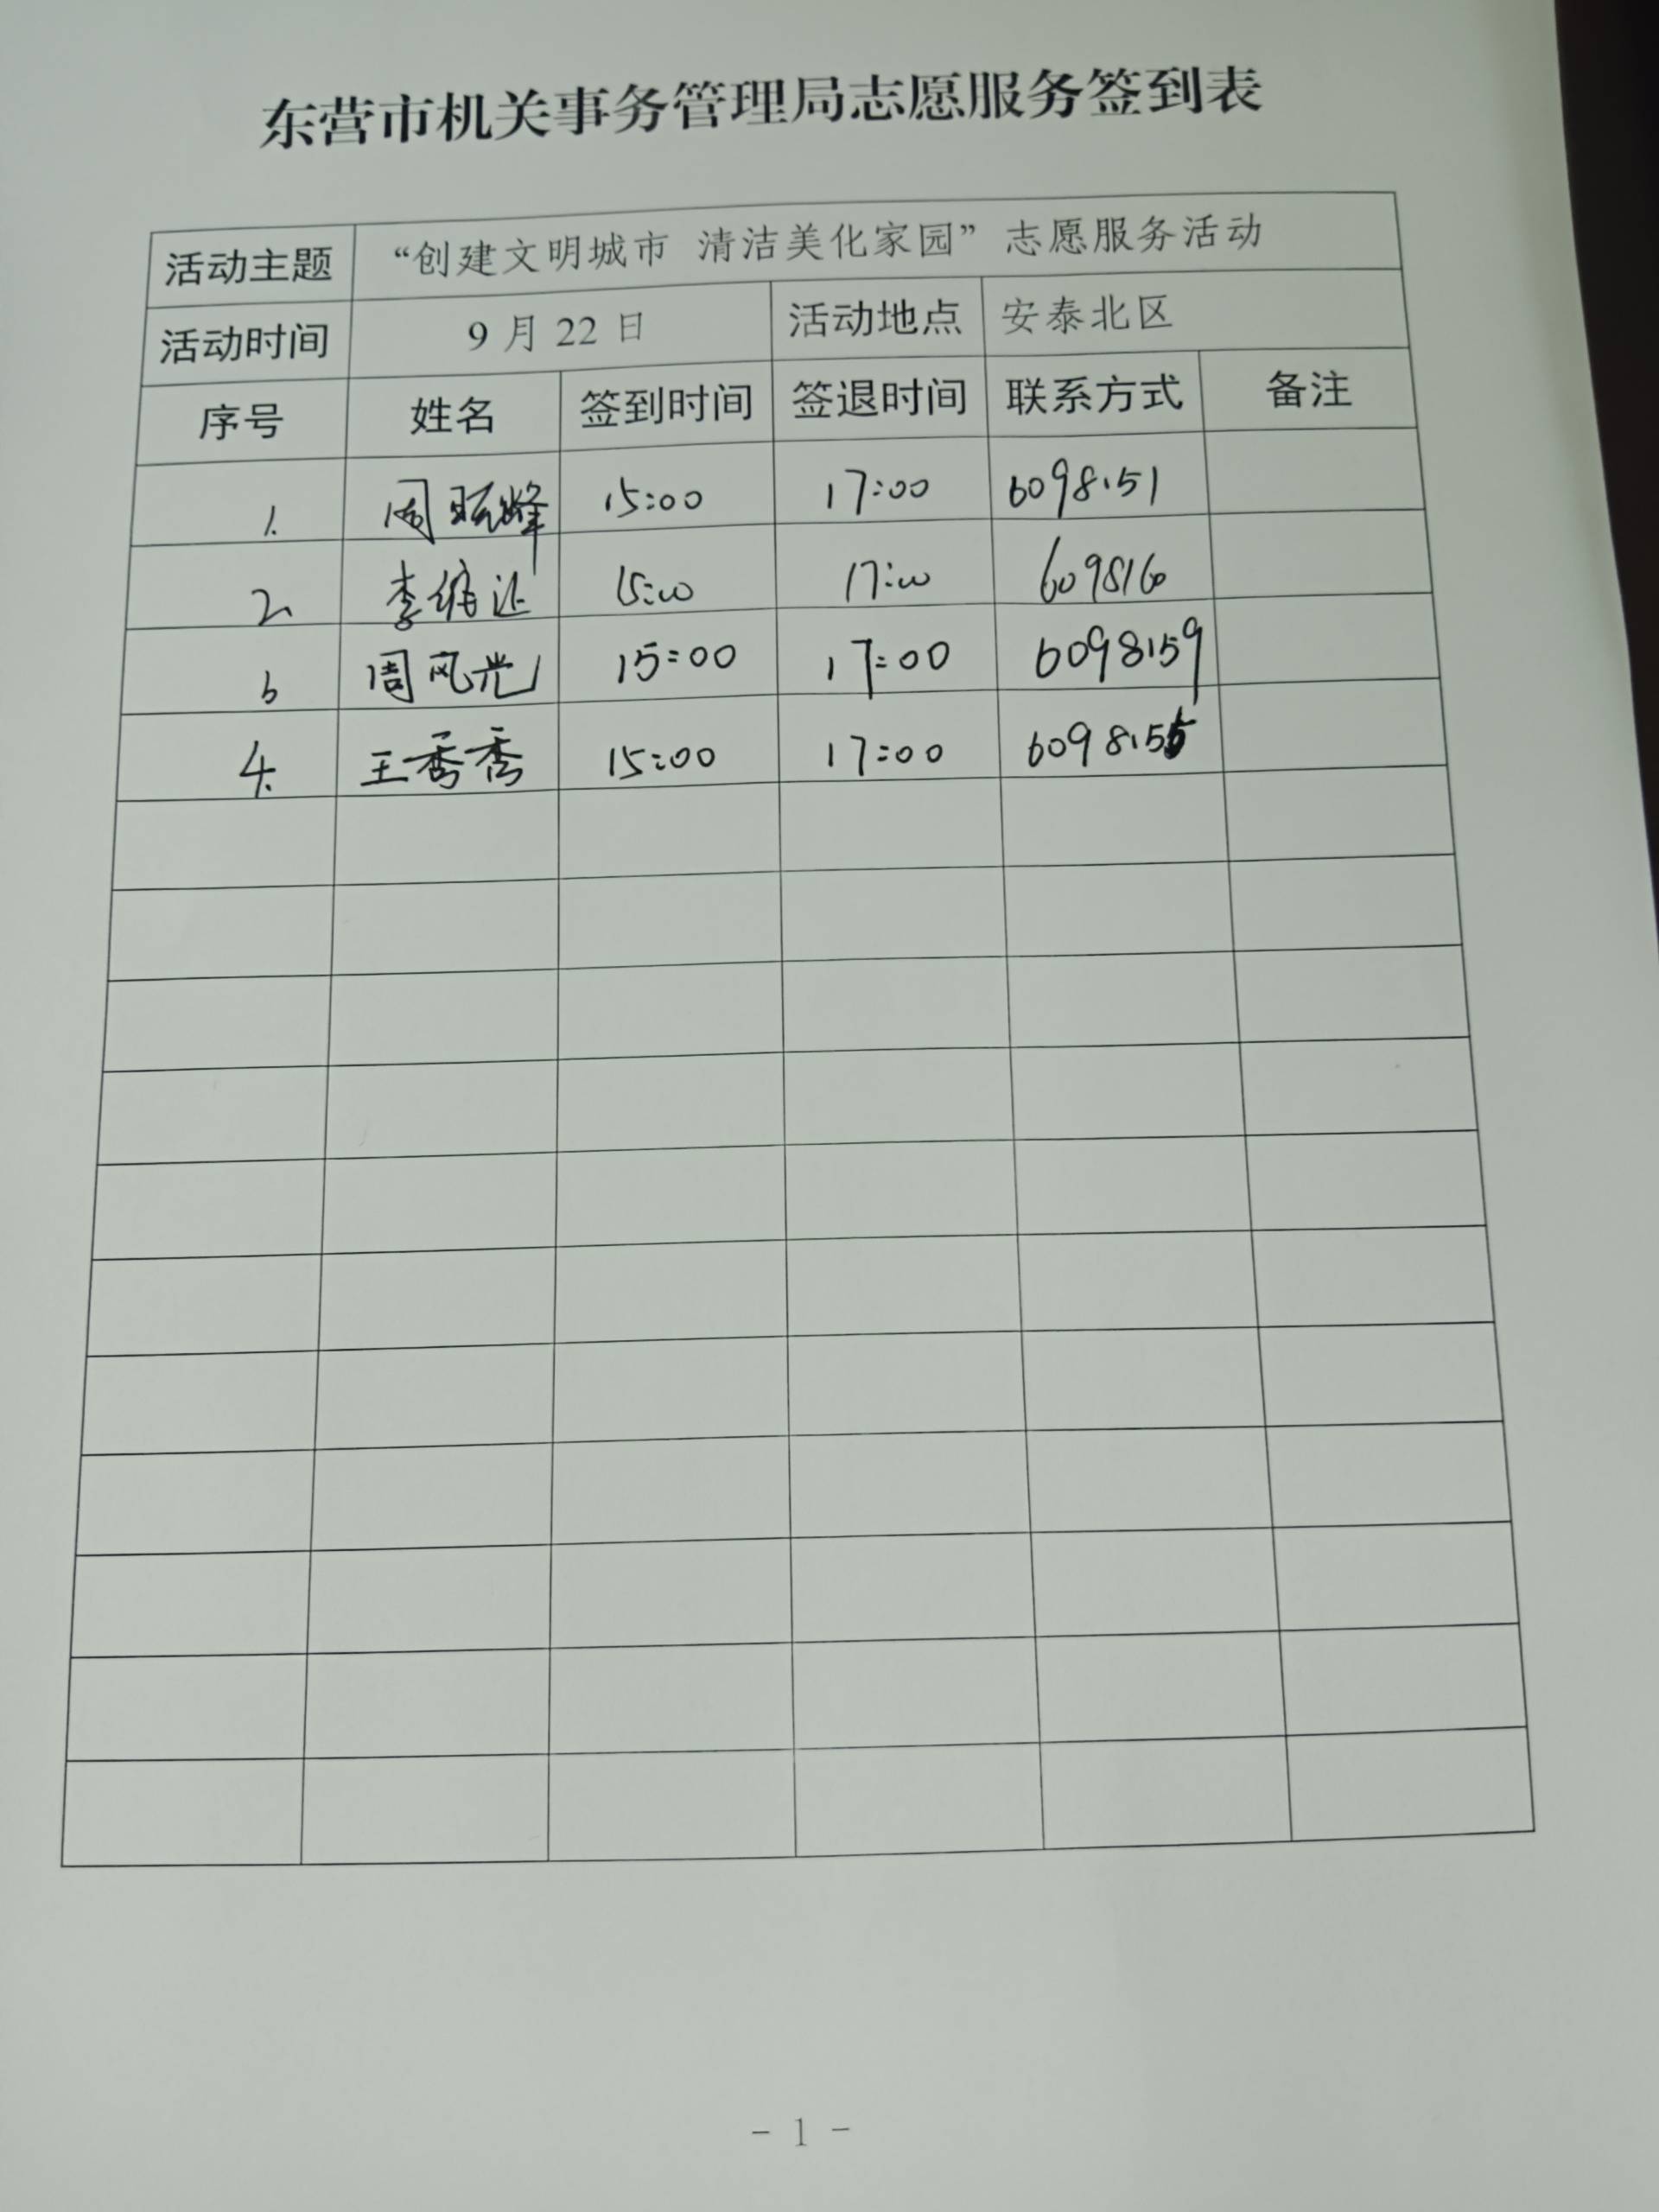 东营市机关事务管理局志愿服务签到表
活动主题 “创建文明城市 清洁美化家园”志愿服务活动
活动时间 9月22日 活动地点 安泰北区
序号 姓名 签到时间 签退时间 联系方式 备注
1. 周 峰 15:00 17:00 6098151
2 李维 15:00 17:00 609816
3 周风光 15:00 17:00 6098159
4. 王秀秀 15:00 17:00 6098155
- 1 -